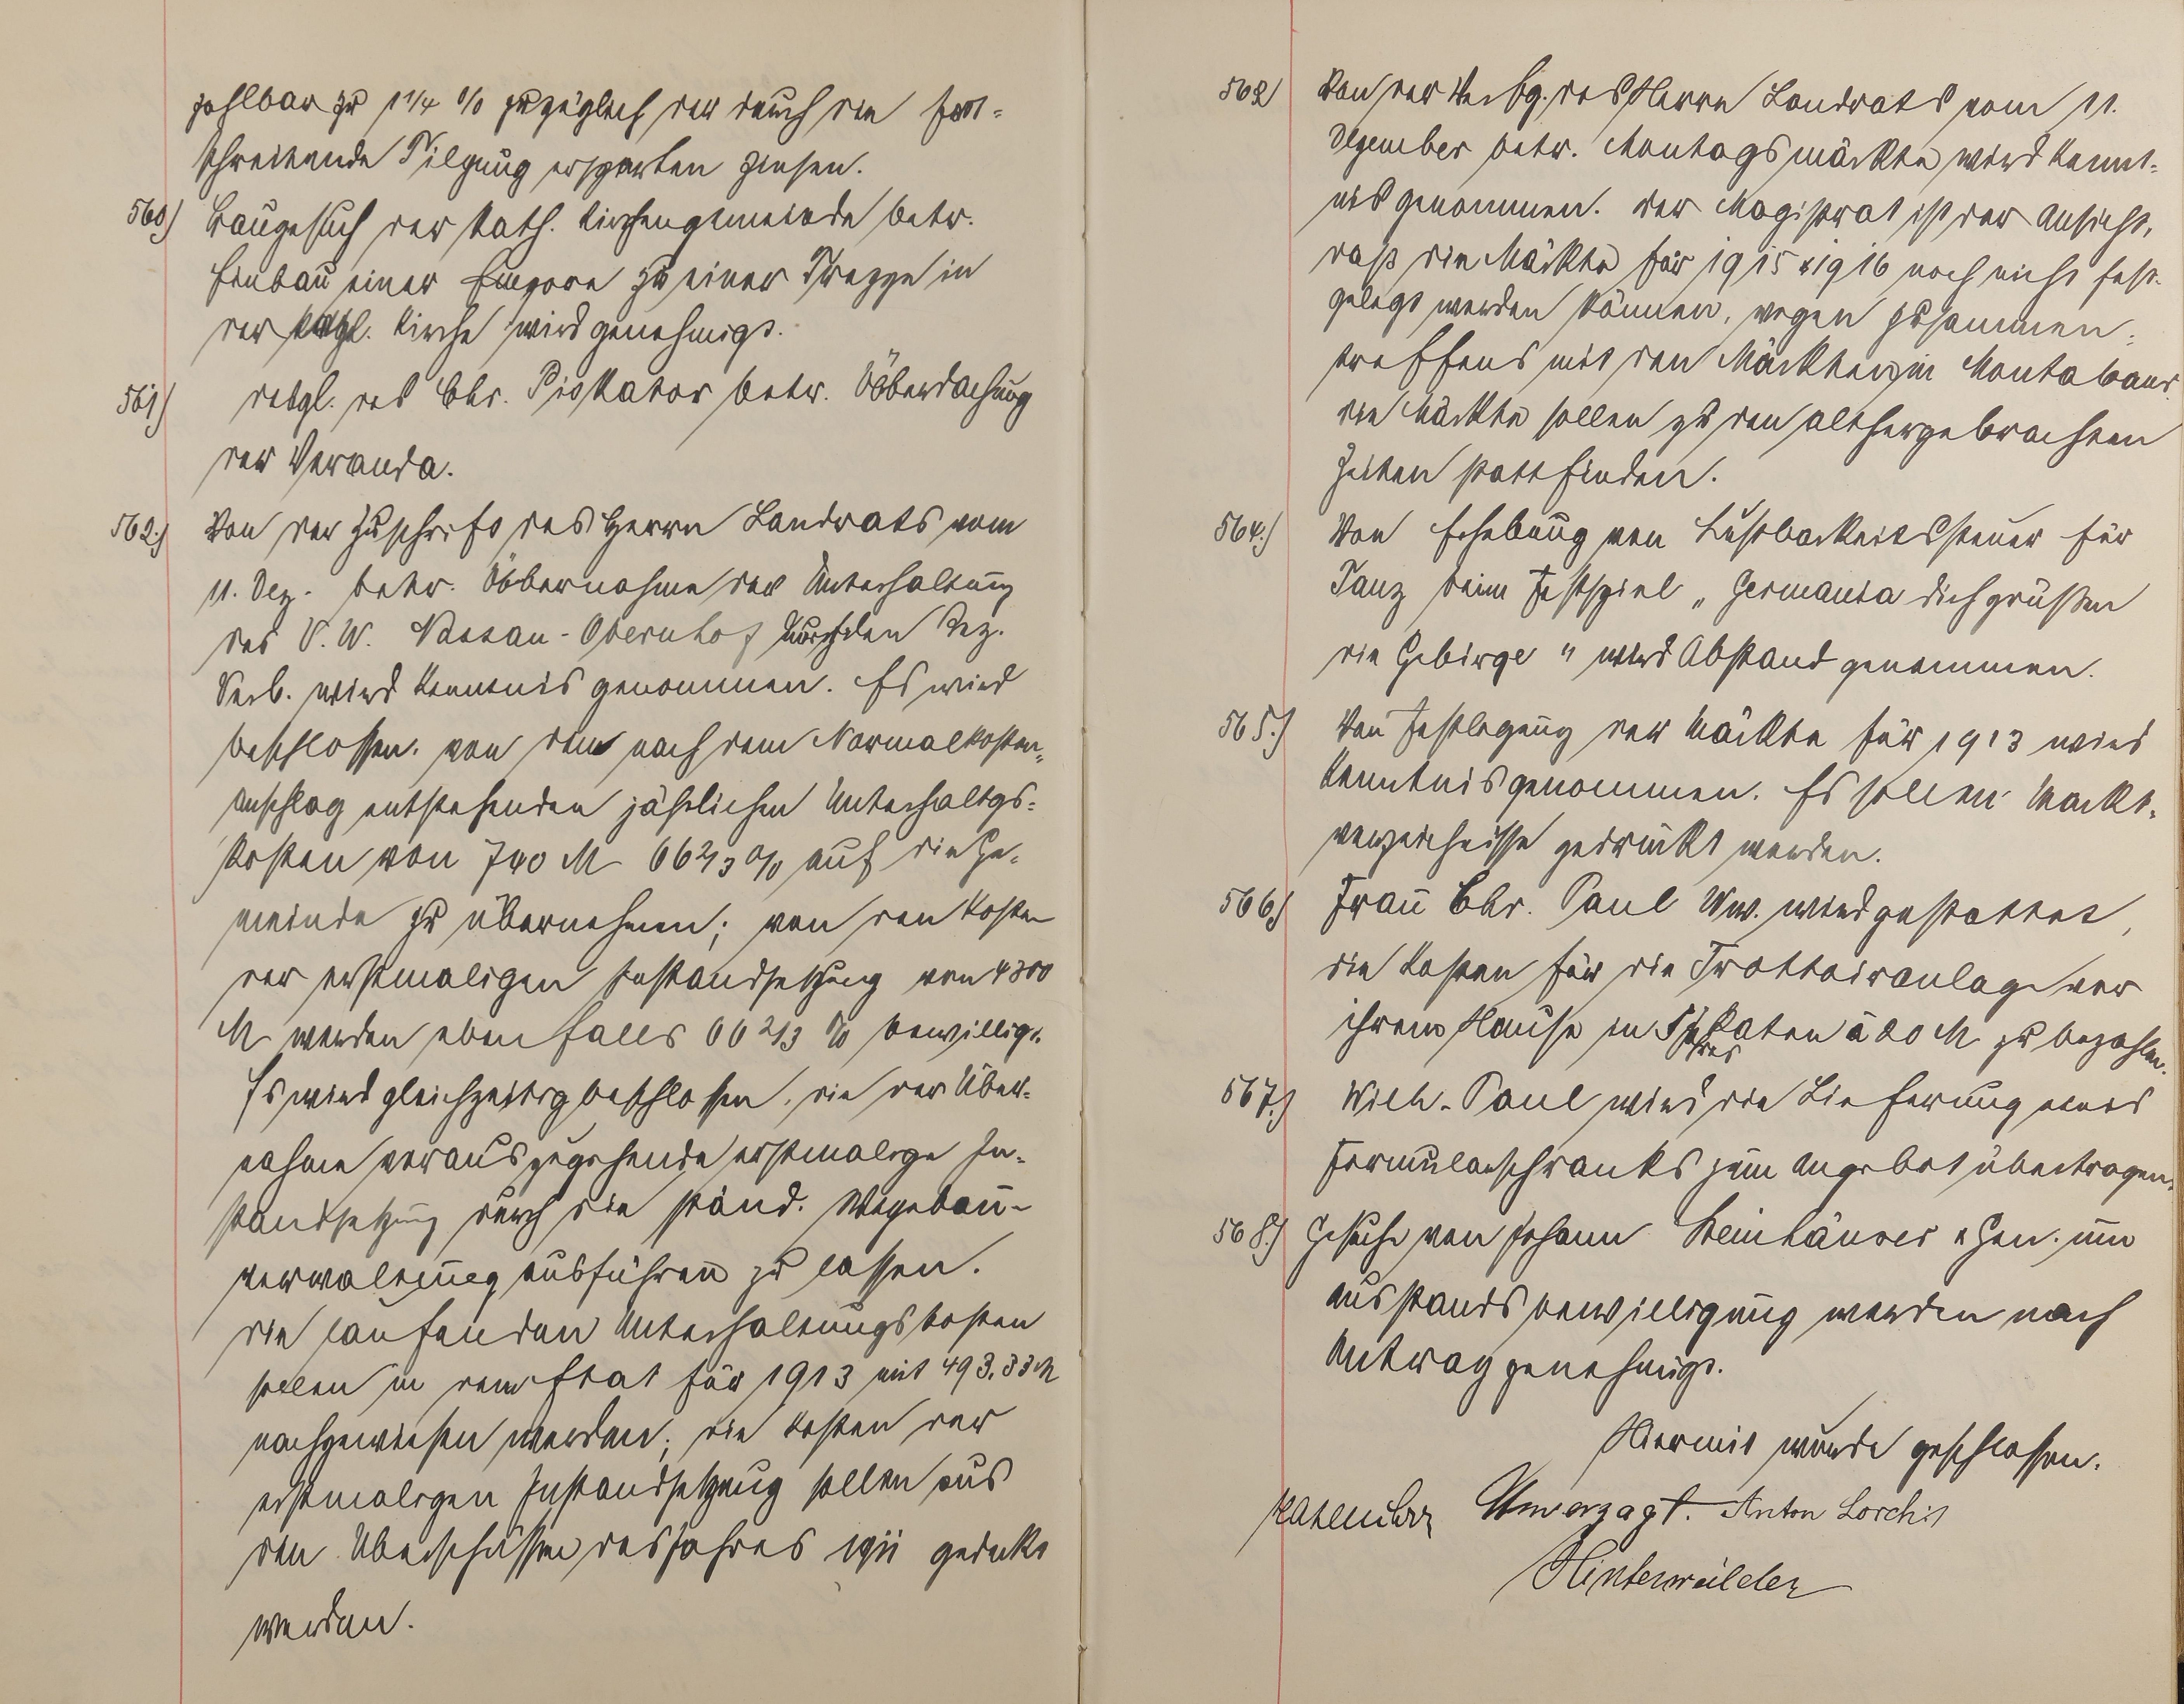 zahlbar zu 1 1/4 % zuzüglich der durch die fort-
schreitende Tilgung ersparten Zinsen.
560.) Baugesuch der kath. Kirchengemeinde betr.
Einbau einer Empore zu einer Treppe in
der Kirche wird genehmigt.
561) desgl. des Chr. Piskator betr. Überdachung
der Veranda.
562.) Von der Zuschrift des Herrn Landrats vom
11. Dez. betr. Übernahme der Unterhaltung
des V. W. Nassau-Obernhof durch den Bez.
Verb. wird Kenntnis genommen. Es wird
beschlossen, von den nach dem Normalkosten-
anschlag entstehenden jährlichen Unterhaltgs-
kosten von 740 M 66 2/3 % auf die Ge-
meinde zu übernehmen; von den Kosten
der erstmaligen Instandsetzung von 4300
M werden ebenfalls 66 2/3 % bewilligt.
Es wird gleichzeitig beschlossen, die der Über-
nahme vorauszugehende erstmalige In-
standsetzung durch die ständ. Wegebau-
verwaltung ausführen zu lassen.
Die laufenden Unterhaltungskosten
sollen in dem Etat für 1913 mit 493,33 M
nachgewiesen werden; die Kosten der
erstmaligen Instandsetzung sollen aus
den Überschüssen des Jahres 1911 gedeckt
werden.
562) Von der Verfg. des Herrn Landrats vom 11.
Dezember betr. Montagsmärkte wird Kennt-
nis genommen. Der Magistrat ist der Ansicht,
daß die Märkte für 1915 & 1916 noch nicht fest-
gelegt werden können, wegen Zusammen-
treffens mit den Märkten in Montabaur.
Die Märkte sollen zu den althergebrachten
Zeiten stattfinden.
564.) Von Erhebung von Lustbarkeitssteuer für
Tanz beim Festspiel „Germania dich grüßen
die Gebirge" wird Abstand genommen.
565.) Von Festlegung der Märkte für 1913 wird
Kenntnis genommen. Es sollen Markt-
verzeichnisse gedruckt werden.
566.) Frau Chr. Paul Ww. wird gestattet,
die Kosten für die Trottoiranlage vor
ihrem Hause in Raten à 20 M zu bezahlen.
567.) Wilh. Paul wird die Lieferung eines
Formularschranks zum Angebot übertragen.
568.) Gesuche von Johann Steinhäuser & Gen. um
Ausstandsbewilligung werden nach
Antrag genehmigt.
Hiermit wurde geschlossen.
Unverzagt. Anton Lorch
Hinterwälder